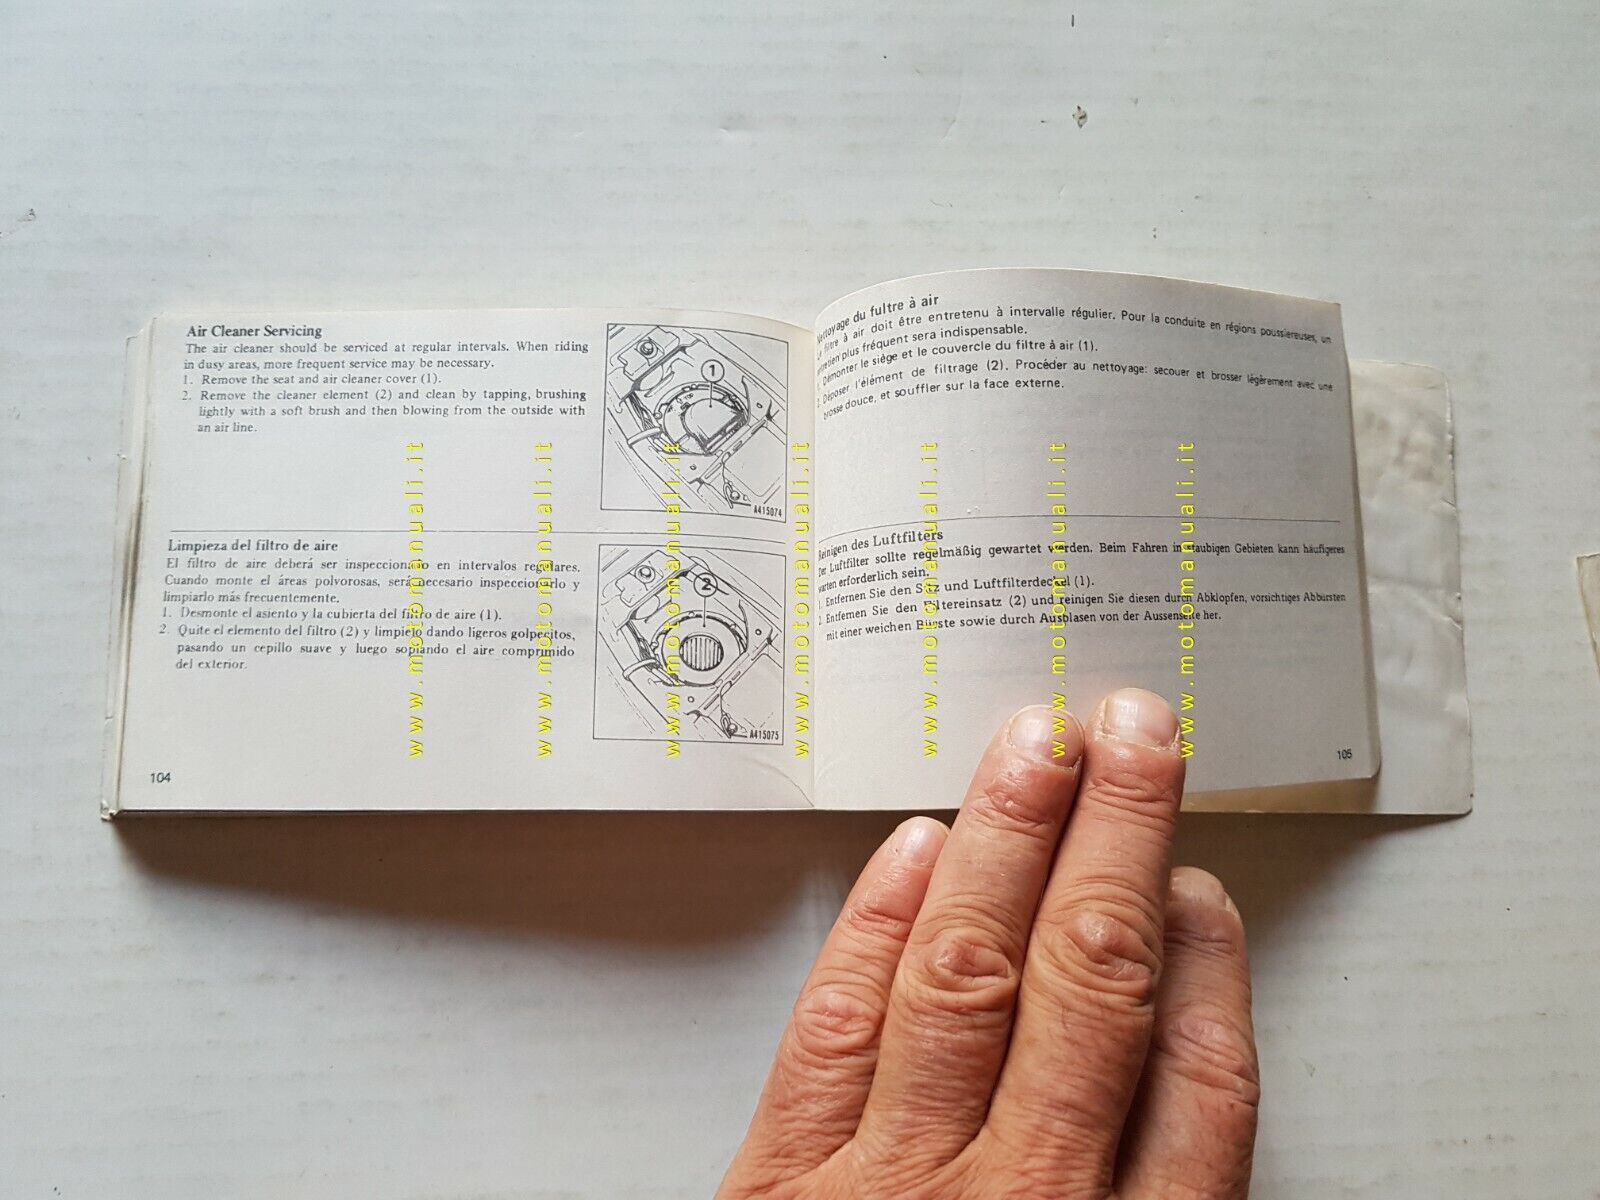 Air Cleaner Servicing
The air cleaner should be serviced at regular intervals. When riding
in dusy areas, more frequent service may be necessary.
1. Remove the seat and air cleaner cover (1).
2. Remove the cleaner element (2) and clean by tapping, brushing
lightly with a soft brush and then blowing from the outside with
an air line.
1
A415074
Limpieza del filtro de aire
El filtro de aire deberá ser inspeccionado en intervalos regulares.
Cuando monte el áreas polvorosas, será necesario inspeccionarlo y
limpiarlo más frecuentemente.
1. Desmonte el asiento y la cubierta del filtro de aire (1).
2. Quite el elemento del filtro (2) y limpielo dando ligeros golpecitos,
pasando un cepillo suave y luego soplando el aire comprimido
del exterior.
2
A415075
104
Nettoyage du fultre à air
Le filtre à air doit être entretenu à intervalle régulier. Pour la conduite en régions poussiereuses, un
entretien plus fréquent sera indispensable.
Démonter le siège et le couvercle du filtre à air (1).
2. Déposer l'élément de filtrage (2). Procéder au nettoyage: secouer et brosser légèrement avec une
brosse douce, et souffler sur la face externe.
Reinigen des Luftfilters
Der Luftfilter sollte regelmäßig gewartet werden. Beim Fahren in staubigen Gebieten kann häufigeres
warten erforderlich sein.
1. Entfernen Sie den Sitz und Luftfilterdeckel (1).
2. Entfernen Sie den Filtereinsatz (2) und reinigen Sie diesen durch Abklopfen, vorsichtiges Abbürsten
mit einer weichen Bürste sowie durch Ausblasen von der Aussenseite her.
105
www.motomanuali.it
www.motomanuali.it
www.motomanuali.it
www.motomanuali.it
www.motomanuali.it
www.motomanuali.it
www.motomanuali.it